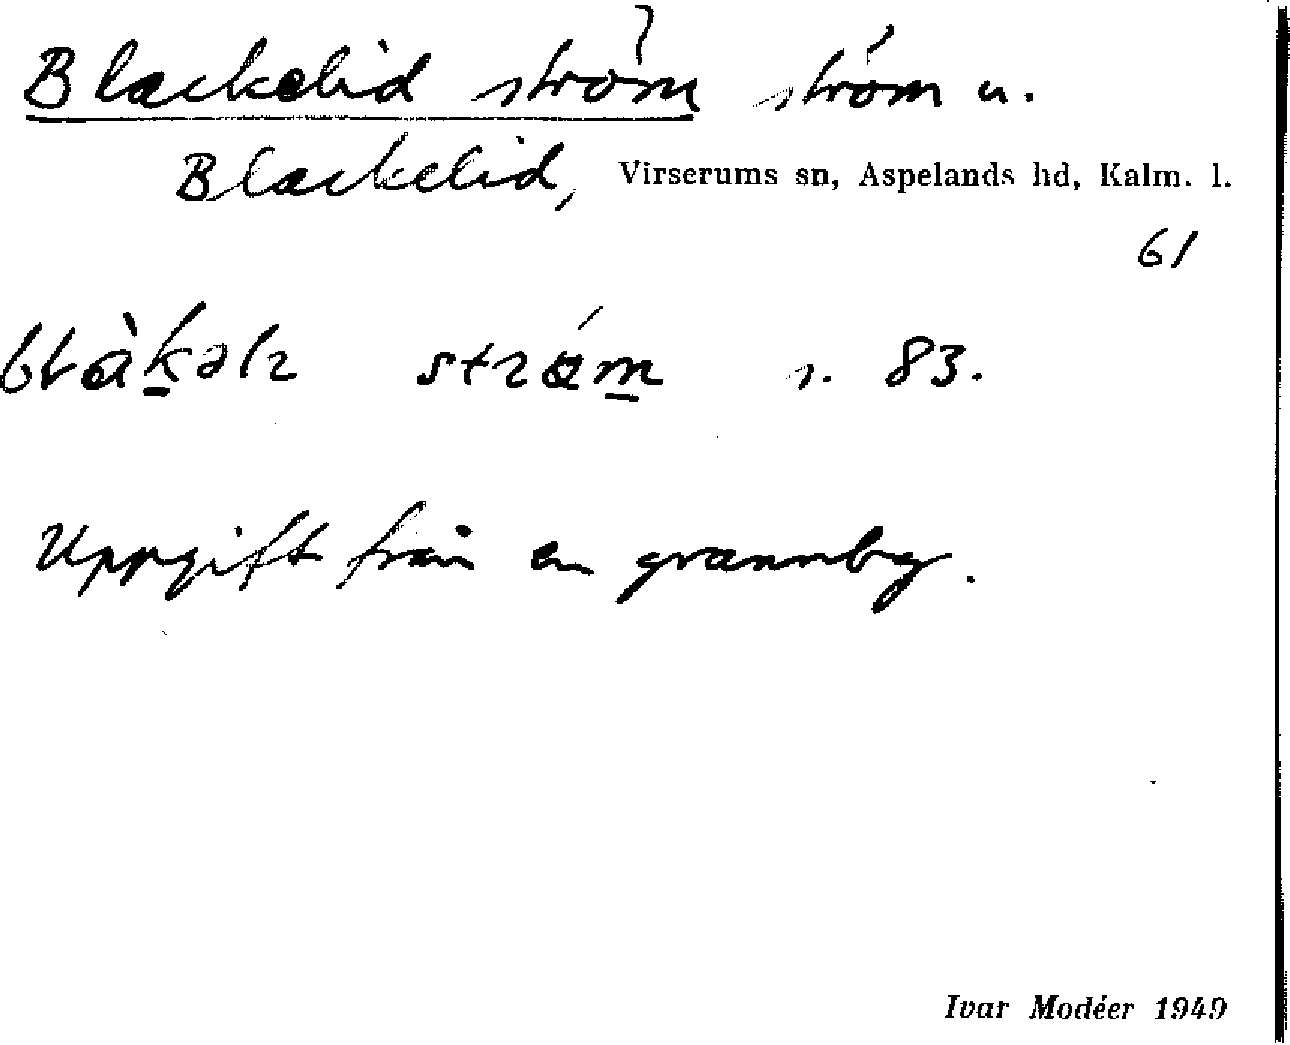 Blackelid ström ström u.
Blackelid, Virserums sn, Aspelands hd, Kalm. l.
61
s. 83.
Uppgift från en grannby.
Ivar Modéer 1949